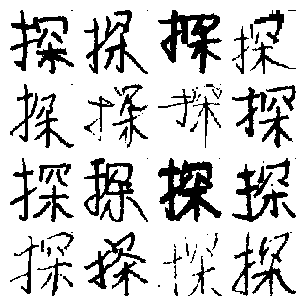 探探探探
探探探探
探探探探
探探探探